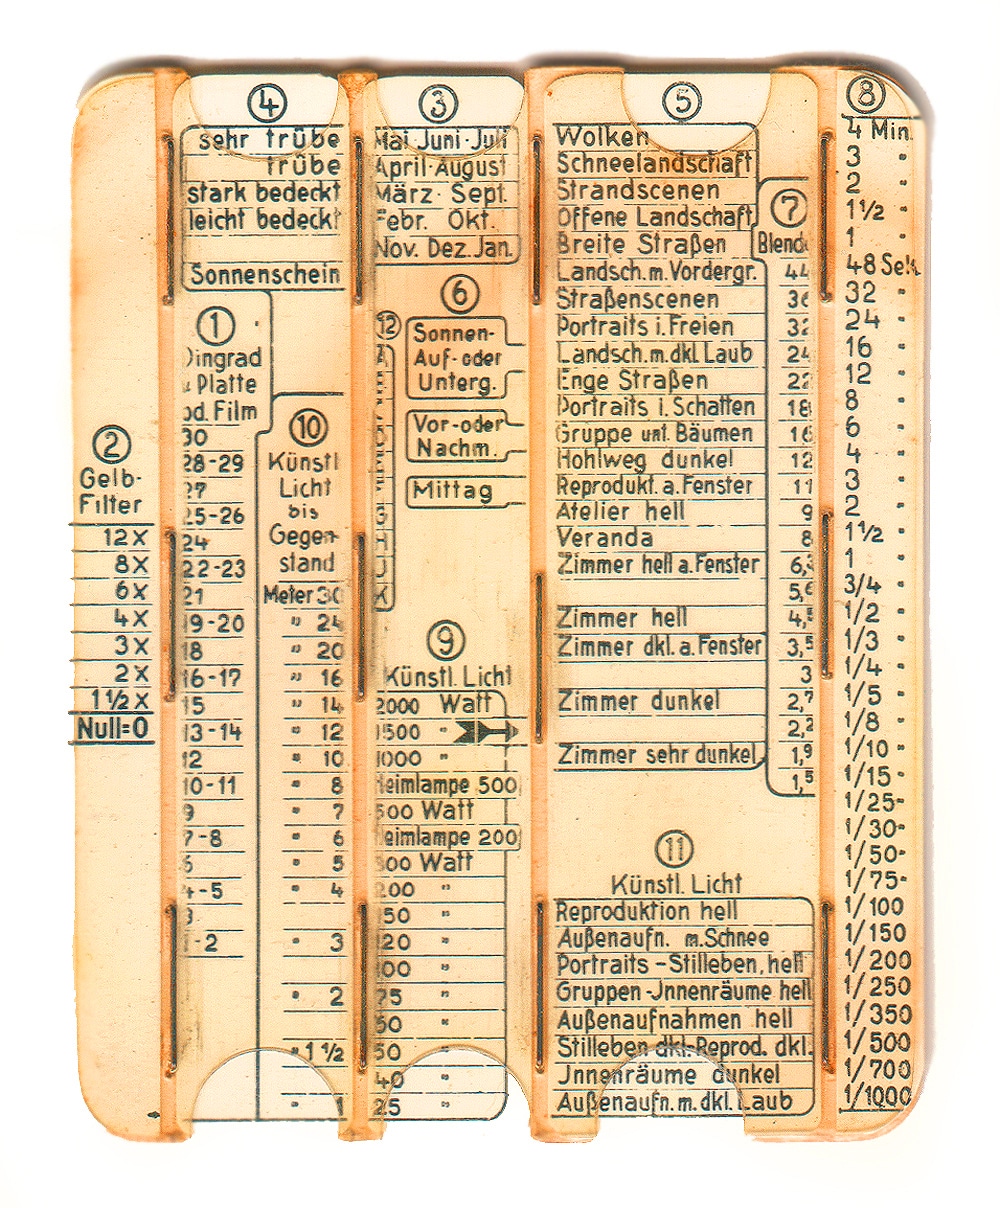 ②
Gelb-
Filter
12X
8X
6X
4X
3X
2X
1½X
Null=0
④
sehr trübe
trübe
stark bedeckt
leicht bedeckt
Sonnenschein
①
Dingrad
Platte
od. Film
30
28-29
27
25-26
24
22-23
21
19-20
18
16-17
15
13-14
12
10-11
9
7-8
6
4-5
3
1-2
⑩
Künstl
Licht
bis
Gegen-
stand
Meter 30
" 24
" 20
" 16
" 14
" 12
" 10
" 8
" 7
" 6
" 5
" 4
" 3
" 2
" 1½
" 1
③
Mai Juni·Juli
April·August
März· Sept.
Febr. Okt.
Nov. Dez. Jan.
⑥
Sonnen-
Auf- oder
Unterg.
Vor-oder
Nachm.
Mittag
⑫
G
H
J
K
⑨
Künstl. Licht
2000 Watt
1500 "
1000 "
Heimlampe 500
500 Watt
Heimlampe 200
300 Watt
200 "
150 "
120 "
100 "
75 "
60 "
50 "
40 "
25 "
⑤
Wolken
Schneelandschaft
Strandscenen
Offene Landschaft
Breite Straßen
Landsch. m. Vordergr.
Straßenscenen
Portraits i. Freien
Landsch. m. dkl Laub
Enge Straßen
Portraits i. Schatten
Gruppe unt. Bäumen
Hohlweg dunkel
Reprodukt. a. Fenster
Atelier hell
Veranda
Zimmer hell a. Fenster
Zimmer hell
Zimmer dkl. a. Fenster
Zimmer dunkel
Zimmer sehr dunkel
⑦
Blende
44
36
32
24
22
18
16
12
11
9
8
6,3
5,6
4,5
3,5
3
2,7
2,2
1,9
1,5
⑪
Künstl. Licht
Reproduktion hell
Außenaufn. m. Schnee
Portraits - Stilleben, hell
Gruppen-Jnnenräume hell
Außenaufnahmen hell
Stilleben dkl. Reprod. dkl.
Jnnenräume dunkel
Außenaufn. m. dkl. Laub
⑧
4 Min.
3 "
2 "
1½ "
1 "
48 Sek.
32 "
24 "
16 "
12 "
8 "
6 "
4 "
3 "
2 "
1½ "
1 "
3/4 "
1/2 "
1/3 "
1/4 "
1/5 "
1/8 "
1/10 "
1/15 "
1/25 "
1/30 "
1/50 "
1/75 "
1/100
1/150
1/200
1/250
1/350
1/500
1/700
1/1000